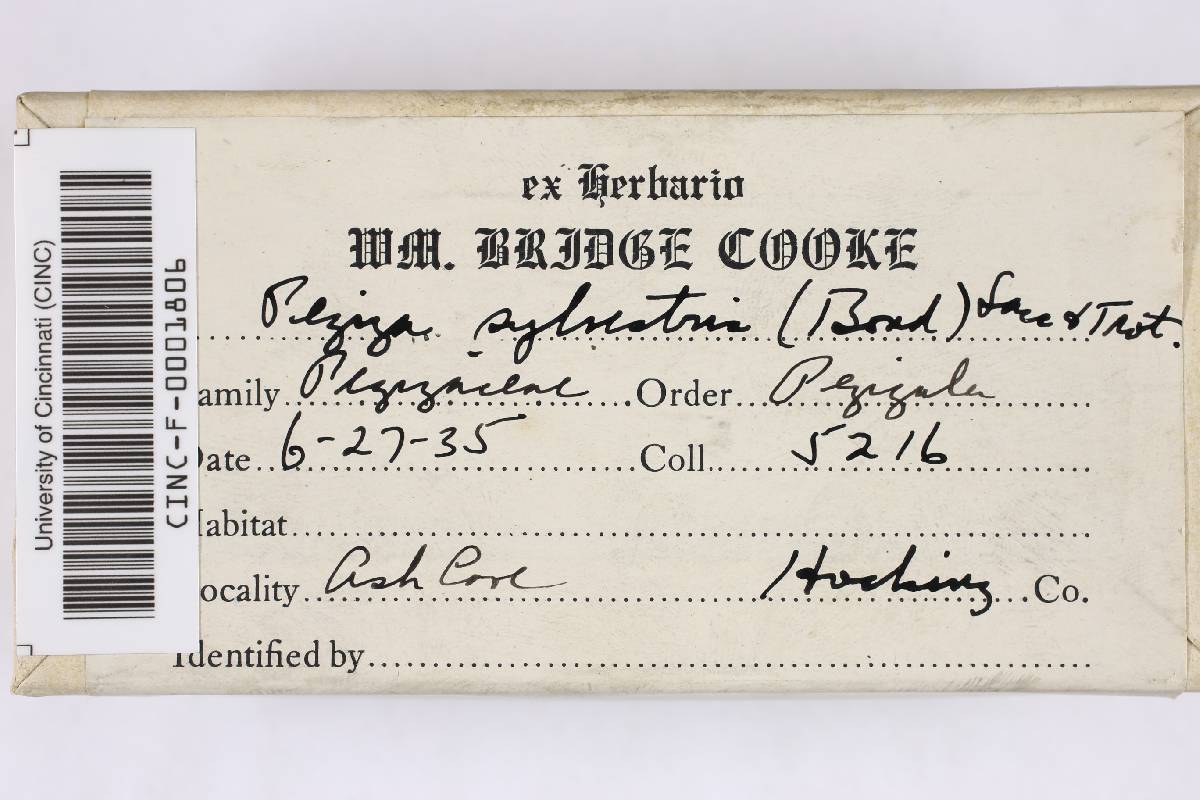 University of Cincinnati (CINC)
CINC-F-0001806
ex Herbario
WM. BRIDGE COOKE
Peziza sylvestris (Boud) Sacc & Trot.
amily Pezizaceae Order Pezizales
Date 6-27-35 Coll. 5216
Habitat
ocality Ash Cave Hocking Co.
Identified by